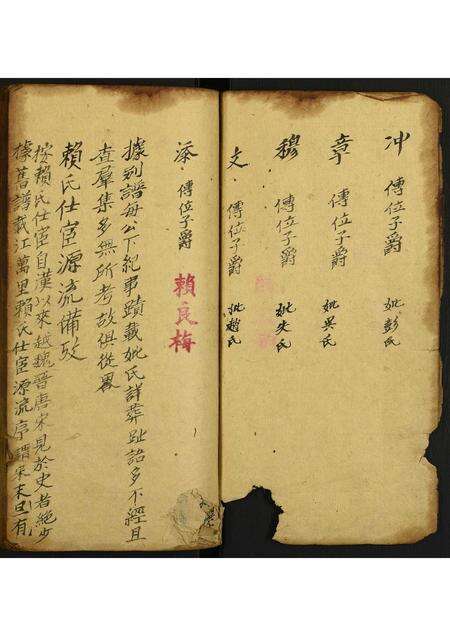 冲 傳位子爵 妣彭氏
章 傳位子爵 妣吳氏
穆 傳位子爵 妣朱氏
文 傳位子爵 妣趙氏
添 傳位子爵
賴良梅
據別譜每公下紀事蹟載妣氏詳葬趾諮多不經且
查羣集多無所考故俱從畧
賴氏仕宦源流備攷
按賴氏仕宦自漢以來越魏晋唐宋見於史者絕少
據舊譜載江萬里賴氏仕宦源流序謂宋末旦有